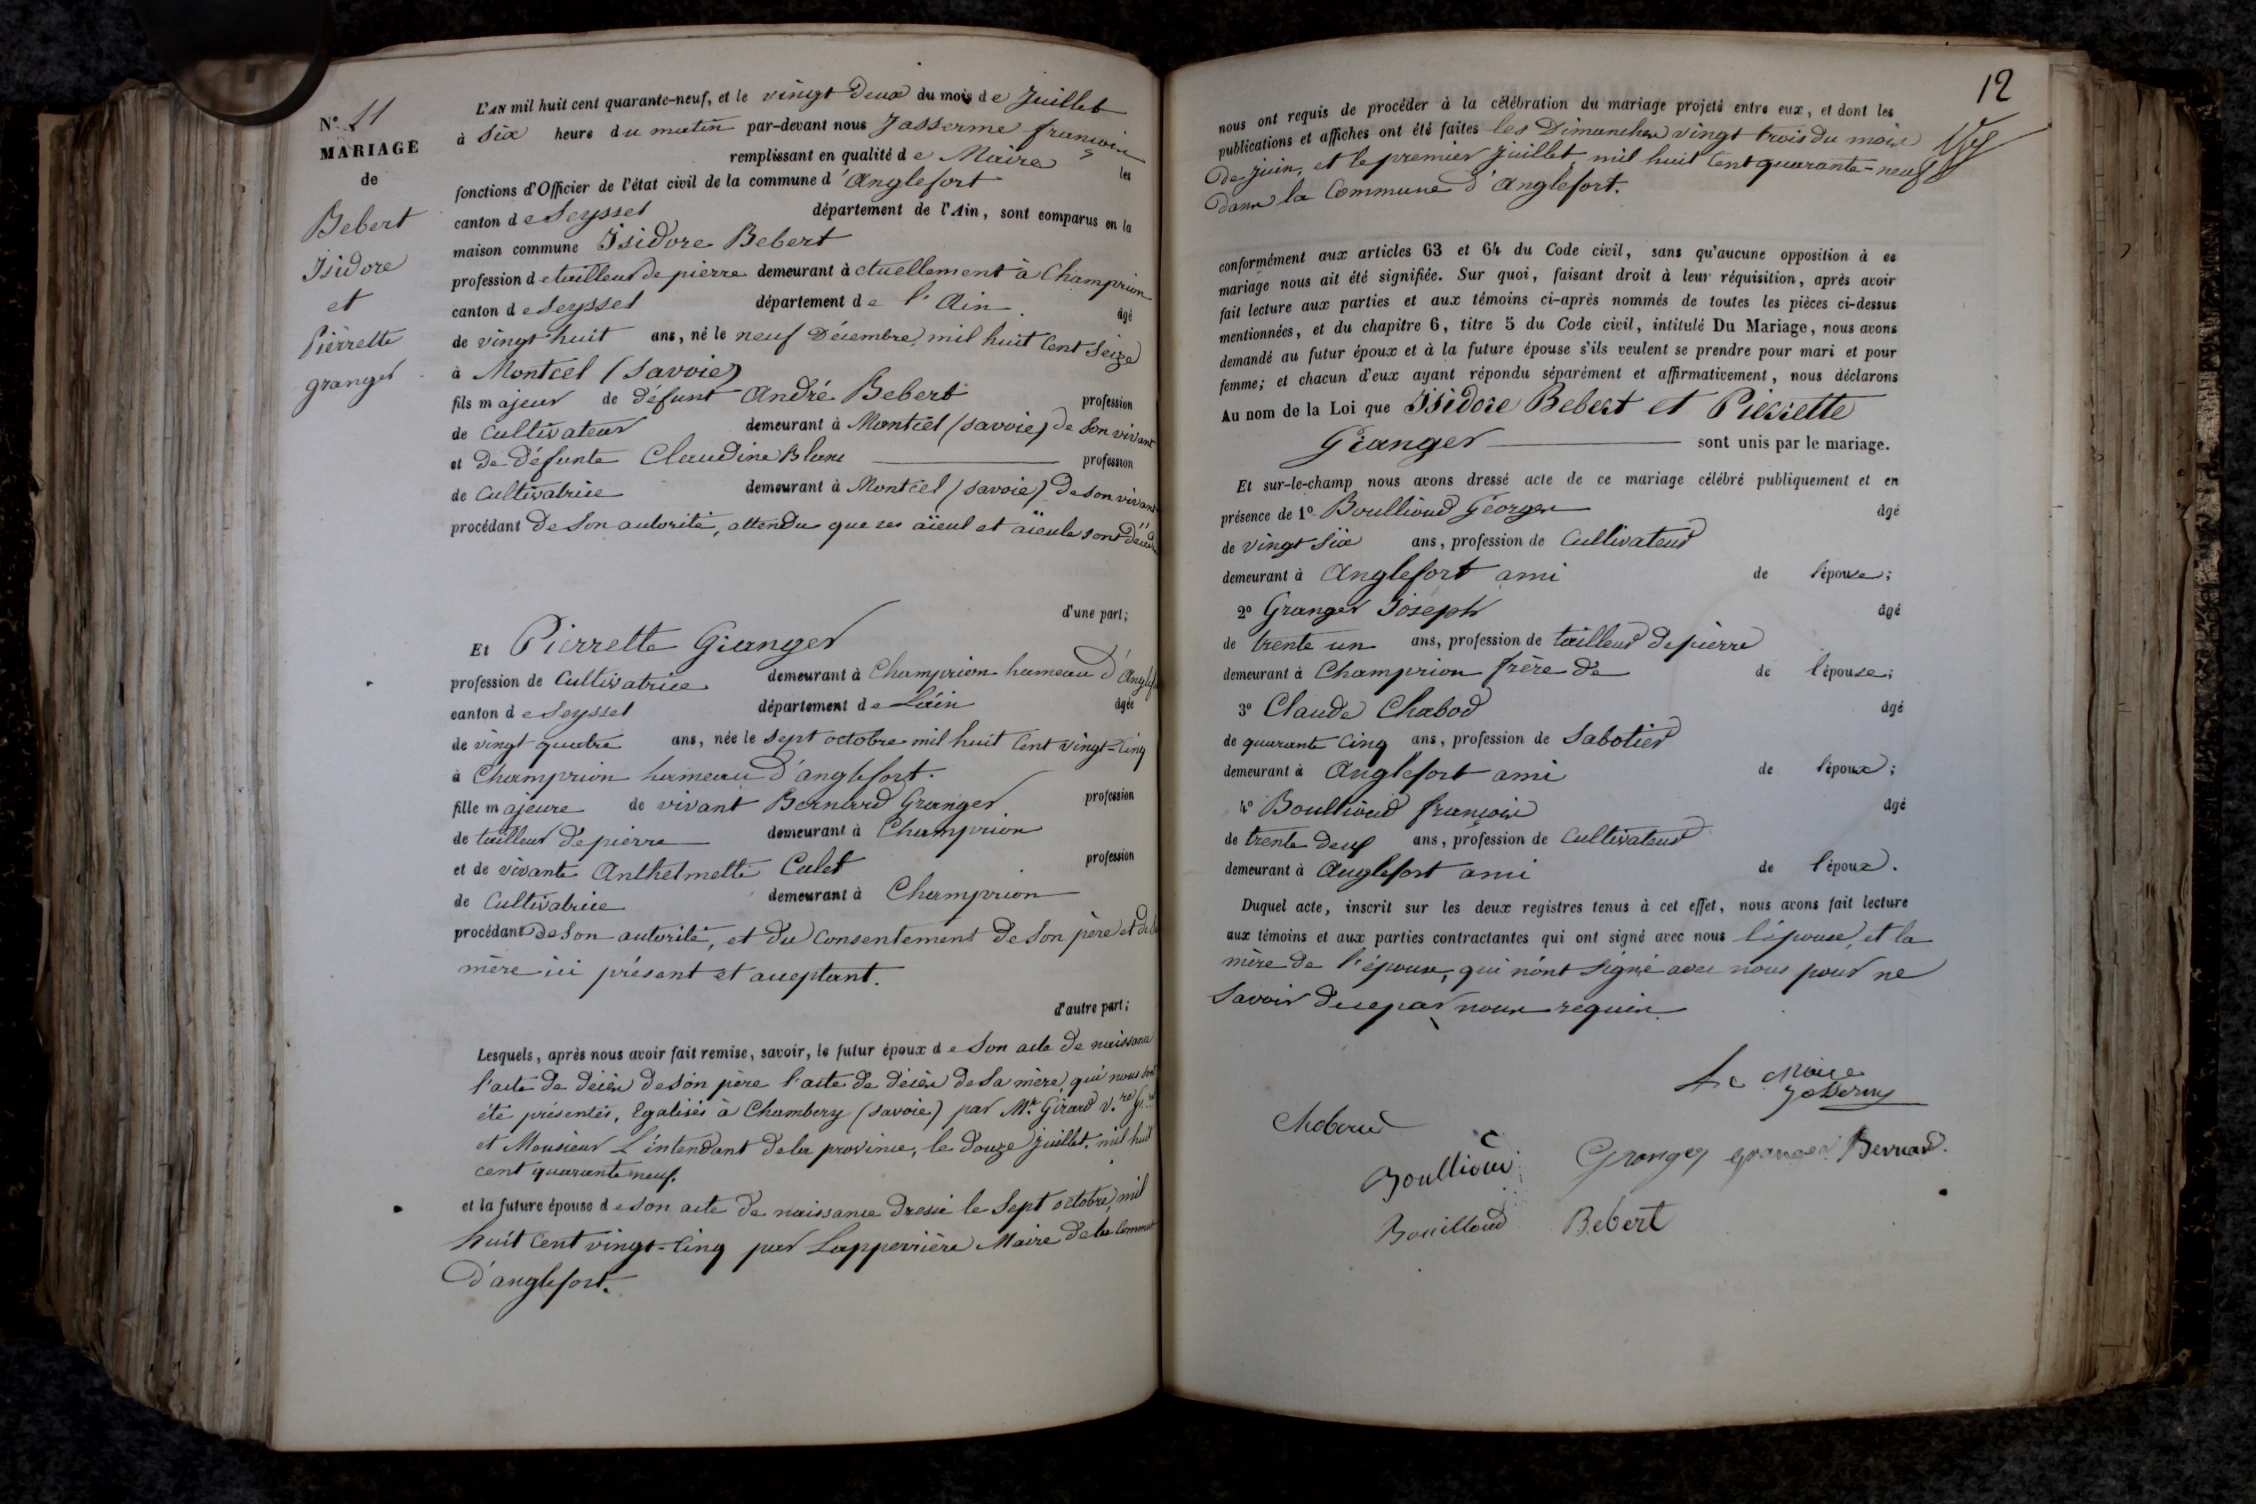 N.° 11
MARIAGE
de
Bebert
Isidore
et
Pierrette
granger
L'AN mil huit cent quarante-neuf, et le vingt deux du mois de Juillet
à Six heure du matin par-devant nous Jasserme françois
remplissant en qualité de Maire les
fonctions d'Officier de l'état civil de la commune d'Anglefort
canton de Seyssel département de l'Ain, sont comparus en la
maison commune Isidore Bebert
profession de tailleur de pierre demeurant à ctuellement à Champrion
canton de Seyssel département de l'Ain. âgé
de vingt huit ans, né le neuf Décembre mil huit Cent Seize
à Montcel (Savoie)
fils majeur de défunt André Bebert profession
de Cultivateur demeurant à Montcel (savoie) de Son vivant
et de défunte Claudine Blanc profession
de Cultivatrice demeurant à Montcel (savoie) de son vivant
procédant de Son autorité, attendu que ses aïeul et aïeule sont
d'une part;
Et Pierrette Granger
profession de Cultivatrice demeurant à Champrion hameau d'
canton de Seyssel département de Láin âgée
de vingt quatre ans, née le sept octobre mil huit Cent vingt-Cinq
à Champrion hameau d'anglefort.
fille majeure de vivant Bernard Granger profession
de tailleur de pierre demeurant à Champrion
et de vivante Anthelmette Culet profession
de Cultivatrice demeurant à Champrion
procédant de Son autorité, et du Consentement de Son père et de la
mère ici présent et acceptant.
d'autre part;
Lesquels, après nous avoir fait remise, savoir, le futur époux de Son acte de naissance
l'acte de décès de son père l'acte de décès de Sa mère, qui nous sont
été présentés, légalisés à Chambery (savoie) par Mr. Girard
et Monsieur L'intendant de la province, le douze juillet mil huit
cent quarante neuf.
et la future épouse de Son acte de naissance dressé le Sept octobre mil
huit Cent vingt-Cinq par Lapperrière Maire de la
d'anglefort.
12
nous ont requis de procéder à la célébration du mariage projeté entre eux, et dont les
publications et affiches ont été faites les Dimanches vingt trois du mois
de juin, et le premier juillet mil huit Cent quarante-neuf
dans la Commune d'Anglefort.
conformément aux articles 63 et 64 du Code civil, sans qu'aucune opposition à ce
mariage nous ait été signifiée. Sur quoi, faisant droit à leur réquisition, après avoir
fait lecture aux parties et aux témoins ci-après nommés de toutes les pièces ci-dessus
mentionnées, et du chapitre 6, titre 5 du Code civil, intitulé Du Mariage, nous avons
demandé au futur époux et à la future épouse s'ils veulent se prendre pour mari et pour
femme; et chacun d'eux ayant répondu séparément et affirmativement, nous déclarons
Au nom de la Loi que Isidore Bebert et Pierrette
Granger sont unis par le mariage.
Et sur-le-champ nous avons dressé acte de ce mariage célébré publiquement et en
présence de 1° Boullioud Georges âgé
de vingt Six ans, profession de Cultivateur
demeurant à Anglefort ami de l'épouse;
2° Granger Joseph âgé
de trente un ans, profession de tailleur de pierre
demeurant à Champrion frère de de l'épouse;
3° Claude Chabod âgé
de quarante Cinq ans, profession de Sabotier
demeurant à Anglefort ami de l'époux;
4° Boullioud françois âgé
de trente deux ans, profession de Cultivateur
demeurant à Anglefort ami de l'époux.
Duquel acte, inscrit sur les deux registres tenus à cet effet, nous avons fait lecture
aux témoins et aux parties contractantes qui ont signé avec nous l'épouse, et la
mère de l'épouse, qui n'ont Signé avec nous pour ne
Savoir de ce par nous requis
Le Maire
Boullioud
Granger Bernard.
Bouilloud Bebert